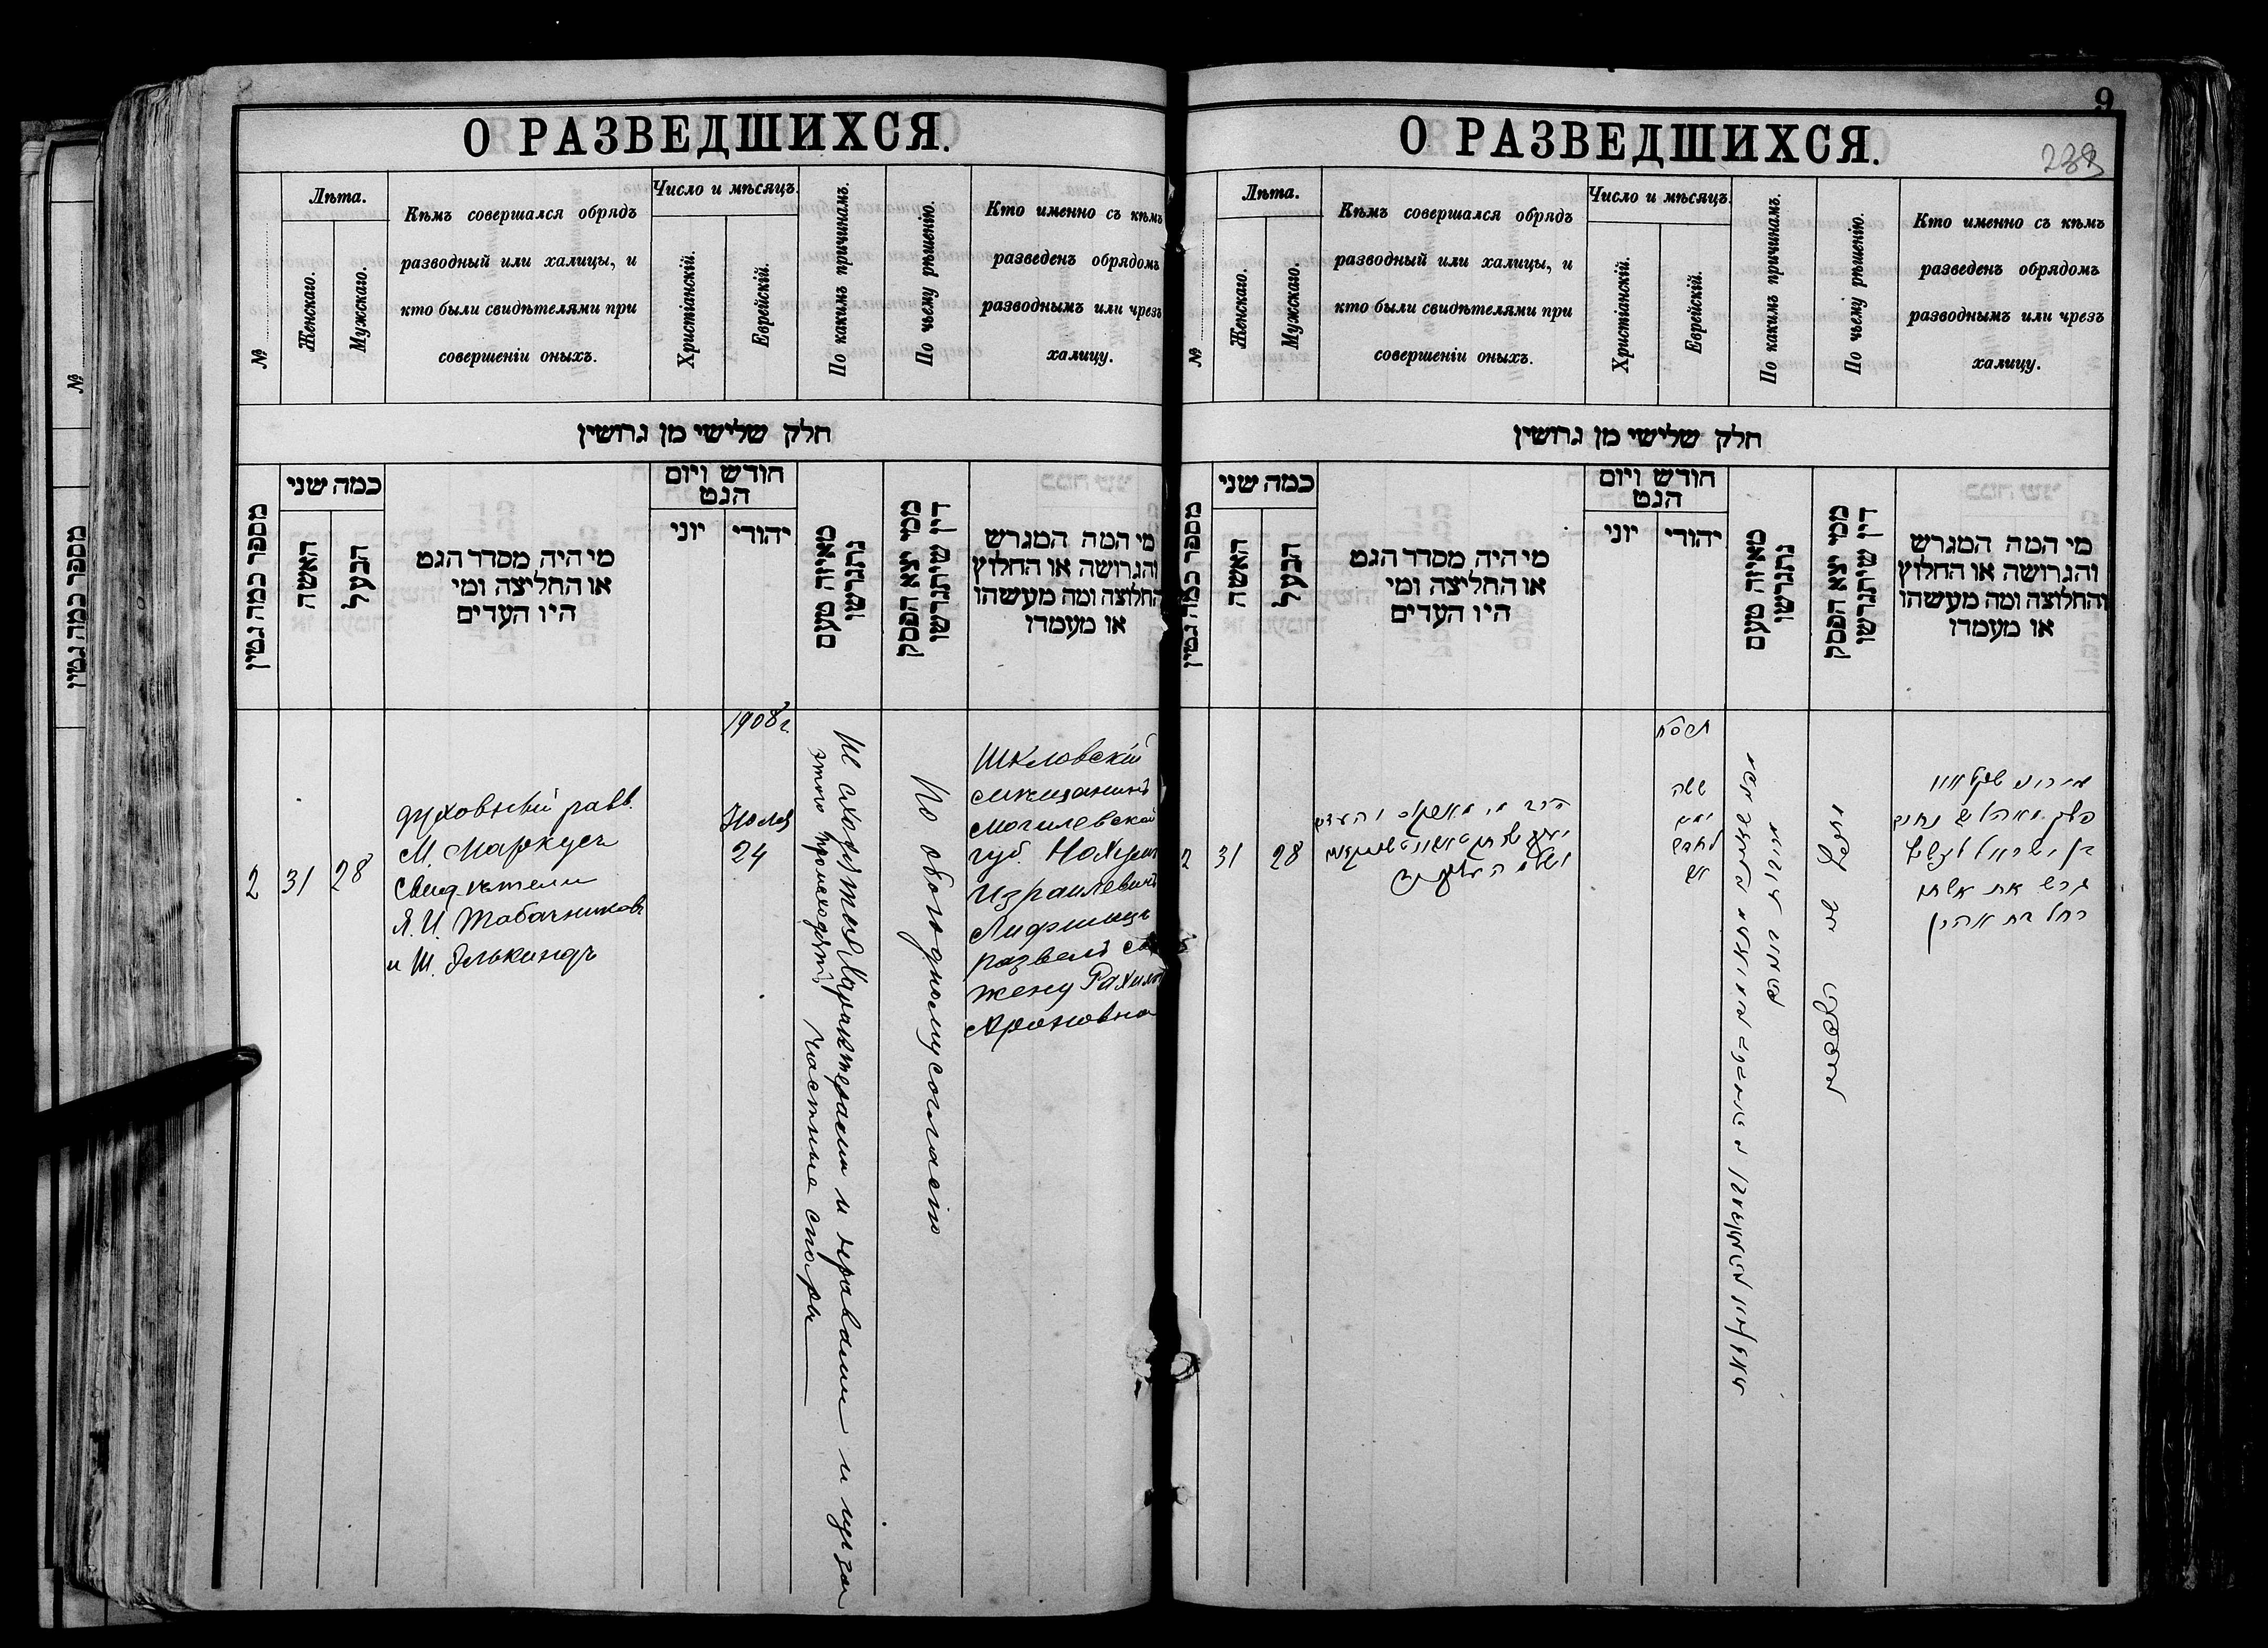 О РАЗВЕДШИХСЯ.
№
Лѣта.
Женскаго.
Мужскаго.
Кѣмъ совершался обрядъ
разводный или халицы, и
кто были свидѣтелями при
совершеніи оныхъ.
Число и мѣсяцъ.
Христіанскій.
Еврейскій.
По какимъ причинамъ.
По чьему рѣшенію.
Кто именно съ кѣмъ
разведенъ обрядомъ
разводнымъ или чрезъ
халицу.
חלק שלישי מן גרושין
מספר כמה גטין
כמה שני
האשה
הבעל
מי היה מסדר הגט
או החליצה ומי
היו העדים
חודש ויום
הגט
יוני
יהודי
מאיזה טעם
נתגרשו
ממי יצא הפסק
דין שיתגרשו
מי המה המגרש
והגרושה או החלוץ
והחלוצה ומה מעשהו
או מעמדו
2
31
28
духовный равв.
М. Маркусъ
свидѣтели
Я. И. Табачниковъ
и Ш. Элькиндъ
1908 г
Іюля
24
Не сходятся характерами и нравами и изъ за
этого происходятъ частные споры
По обоюдному согласію
Шкловскій
мѣщанинъ
Могилевской
губ. Нохумъ
Израилевичъ
Лифшицъ
развелъ св
жену Рахиль
Ароновна
9
О РАЗВЕДШИХСЯ.
238
№
Лѣта.
Женскаго.
Мужскаго.
Кѣмъ совершался обрядъ
разводный или халицы, и
кто были свидѣтелями при
совершеніи оныхъ.
Число и мѣсяцъ.
Христіанскій.
Еврейскій.
По какимъ причинамъ.
По чьему рѣшенію.
Кто именно съ кѣмъ
разведенъ обрядомъ
разводнымъ или чрезъ
халицу.
חלק שלישי מן גרושין
מספר כמה גטין
כמה שני
האשה
הבעל
מי היה מסדר הגט
או החליצה ומי
היו העדים
חודש ויום
הגט
יוני
יהודי
מאיזה טעם
נתגרשו
ממי יצא הפסק
דין שיתגרשו
מי המה המגרש
והגרושה או החלוץ
והחלוצה ומה מעשהו
או מעמדו
2
31
28
הרב מ מארקוס והעדים
תרס״ח
ששה
ימים
לחדש
אב
נחום
בן ישראל ליפשיץ
גרש את אשתו
רחל בת אהרן